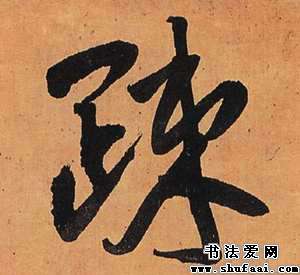 踈
书法爱网
www.shufaai.com